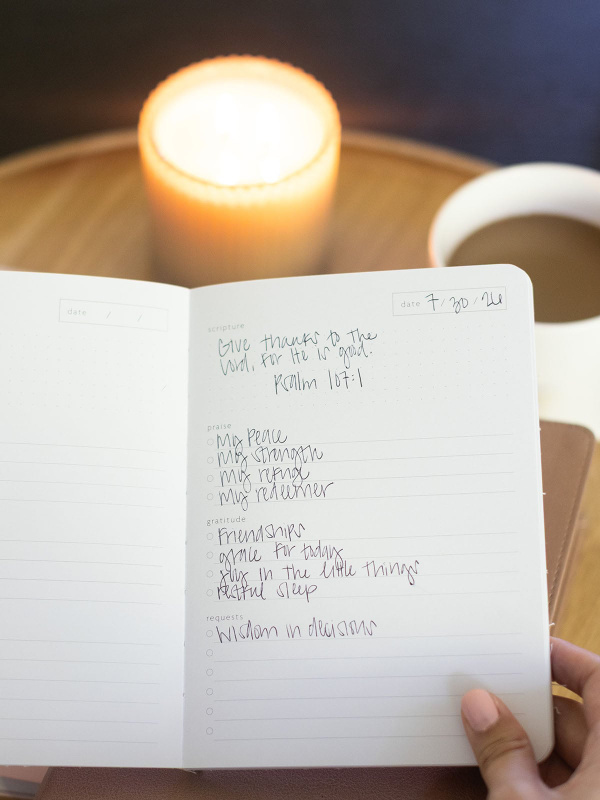 date / /
date 7/30/24
scripture
Give thanks to the
Lord, for He is good.
Psalm 107:1
praise
my peace
my strength
my refuge
my redeemer
gratitude
Friendships
grace for today
joy in the little things
restful sleep
requests
wisdom in decisions